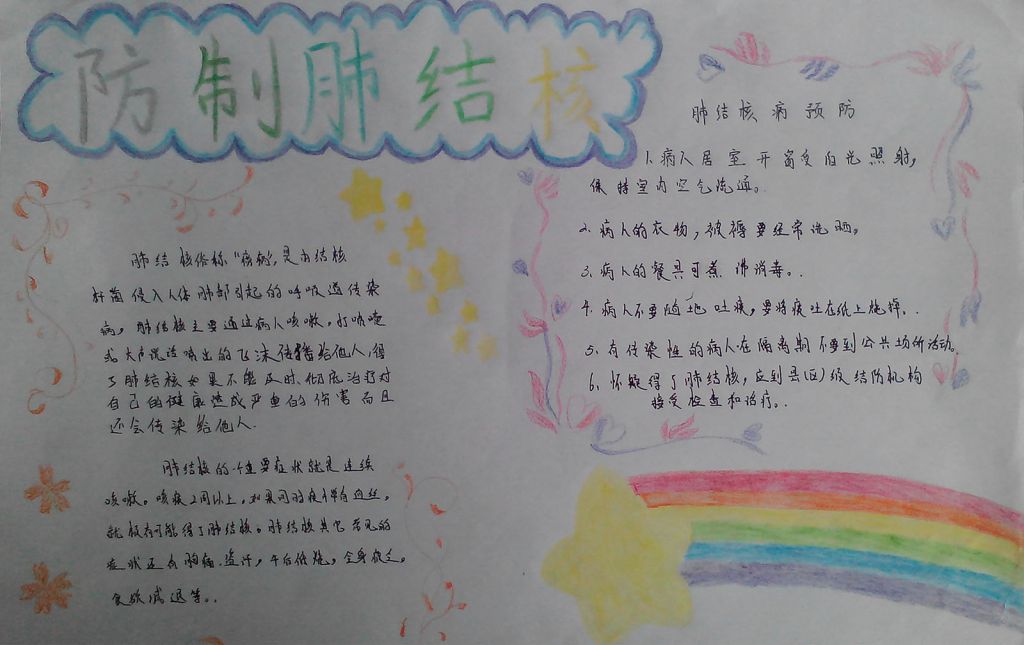 防制肺结核
肺结核俗称“痨病”,是由结核
杆菌侵入人体肺部引起的呼吸道传染
病,肺结核主要通过病人咳嗽,打喷嚏
或大声说话喷出的飞沫传播给他人,得
了肺结核如果不能及时、彻底治疗对
自己的健康造成严重的伤害而且
还会传染给他人.
肺结核的一个重要症状就是连续
咳嗽。咳痰2周以上,如果同时痰中带有血丝,
就极有可能得了肺结核。肺结核其它常见的
症状还有胸痛.盗汗,午后低烧,全身疲乏,
食欲减退等。.
肺结核病预防
1.病人居室开窗受日光照射,
保持室内空气流通。
2.病人的衣物,被褥要经常洗晒。
3.病人的餐具可煮沸消毒。.
4.病人不要随地吐痰,要将痰吐在纸上烧掉。.
5.有传染性的病人在隔离期不要到公共场所活动。
6.怀疑得了肺结核,应到县(区)级结防机构
接受检查和治疗。.